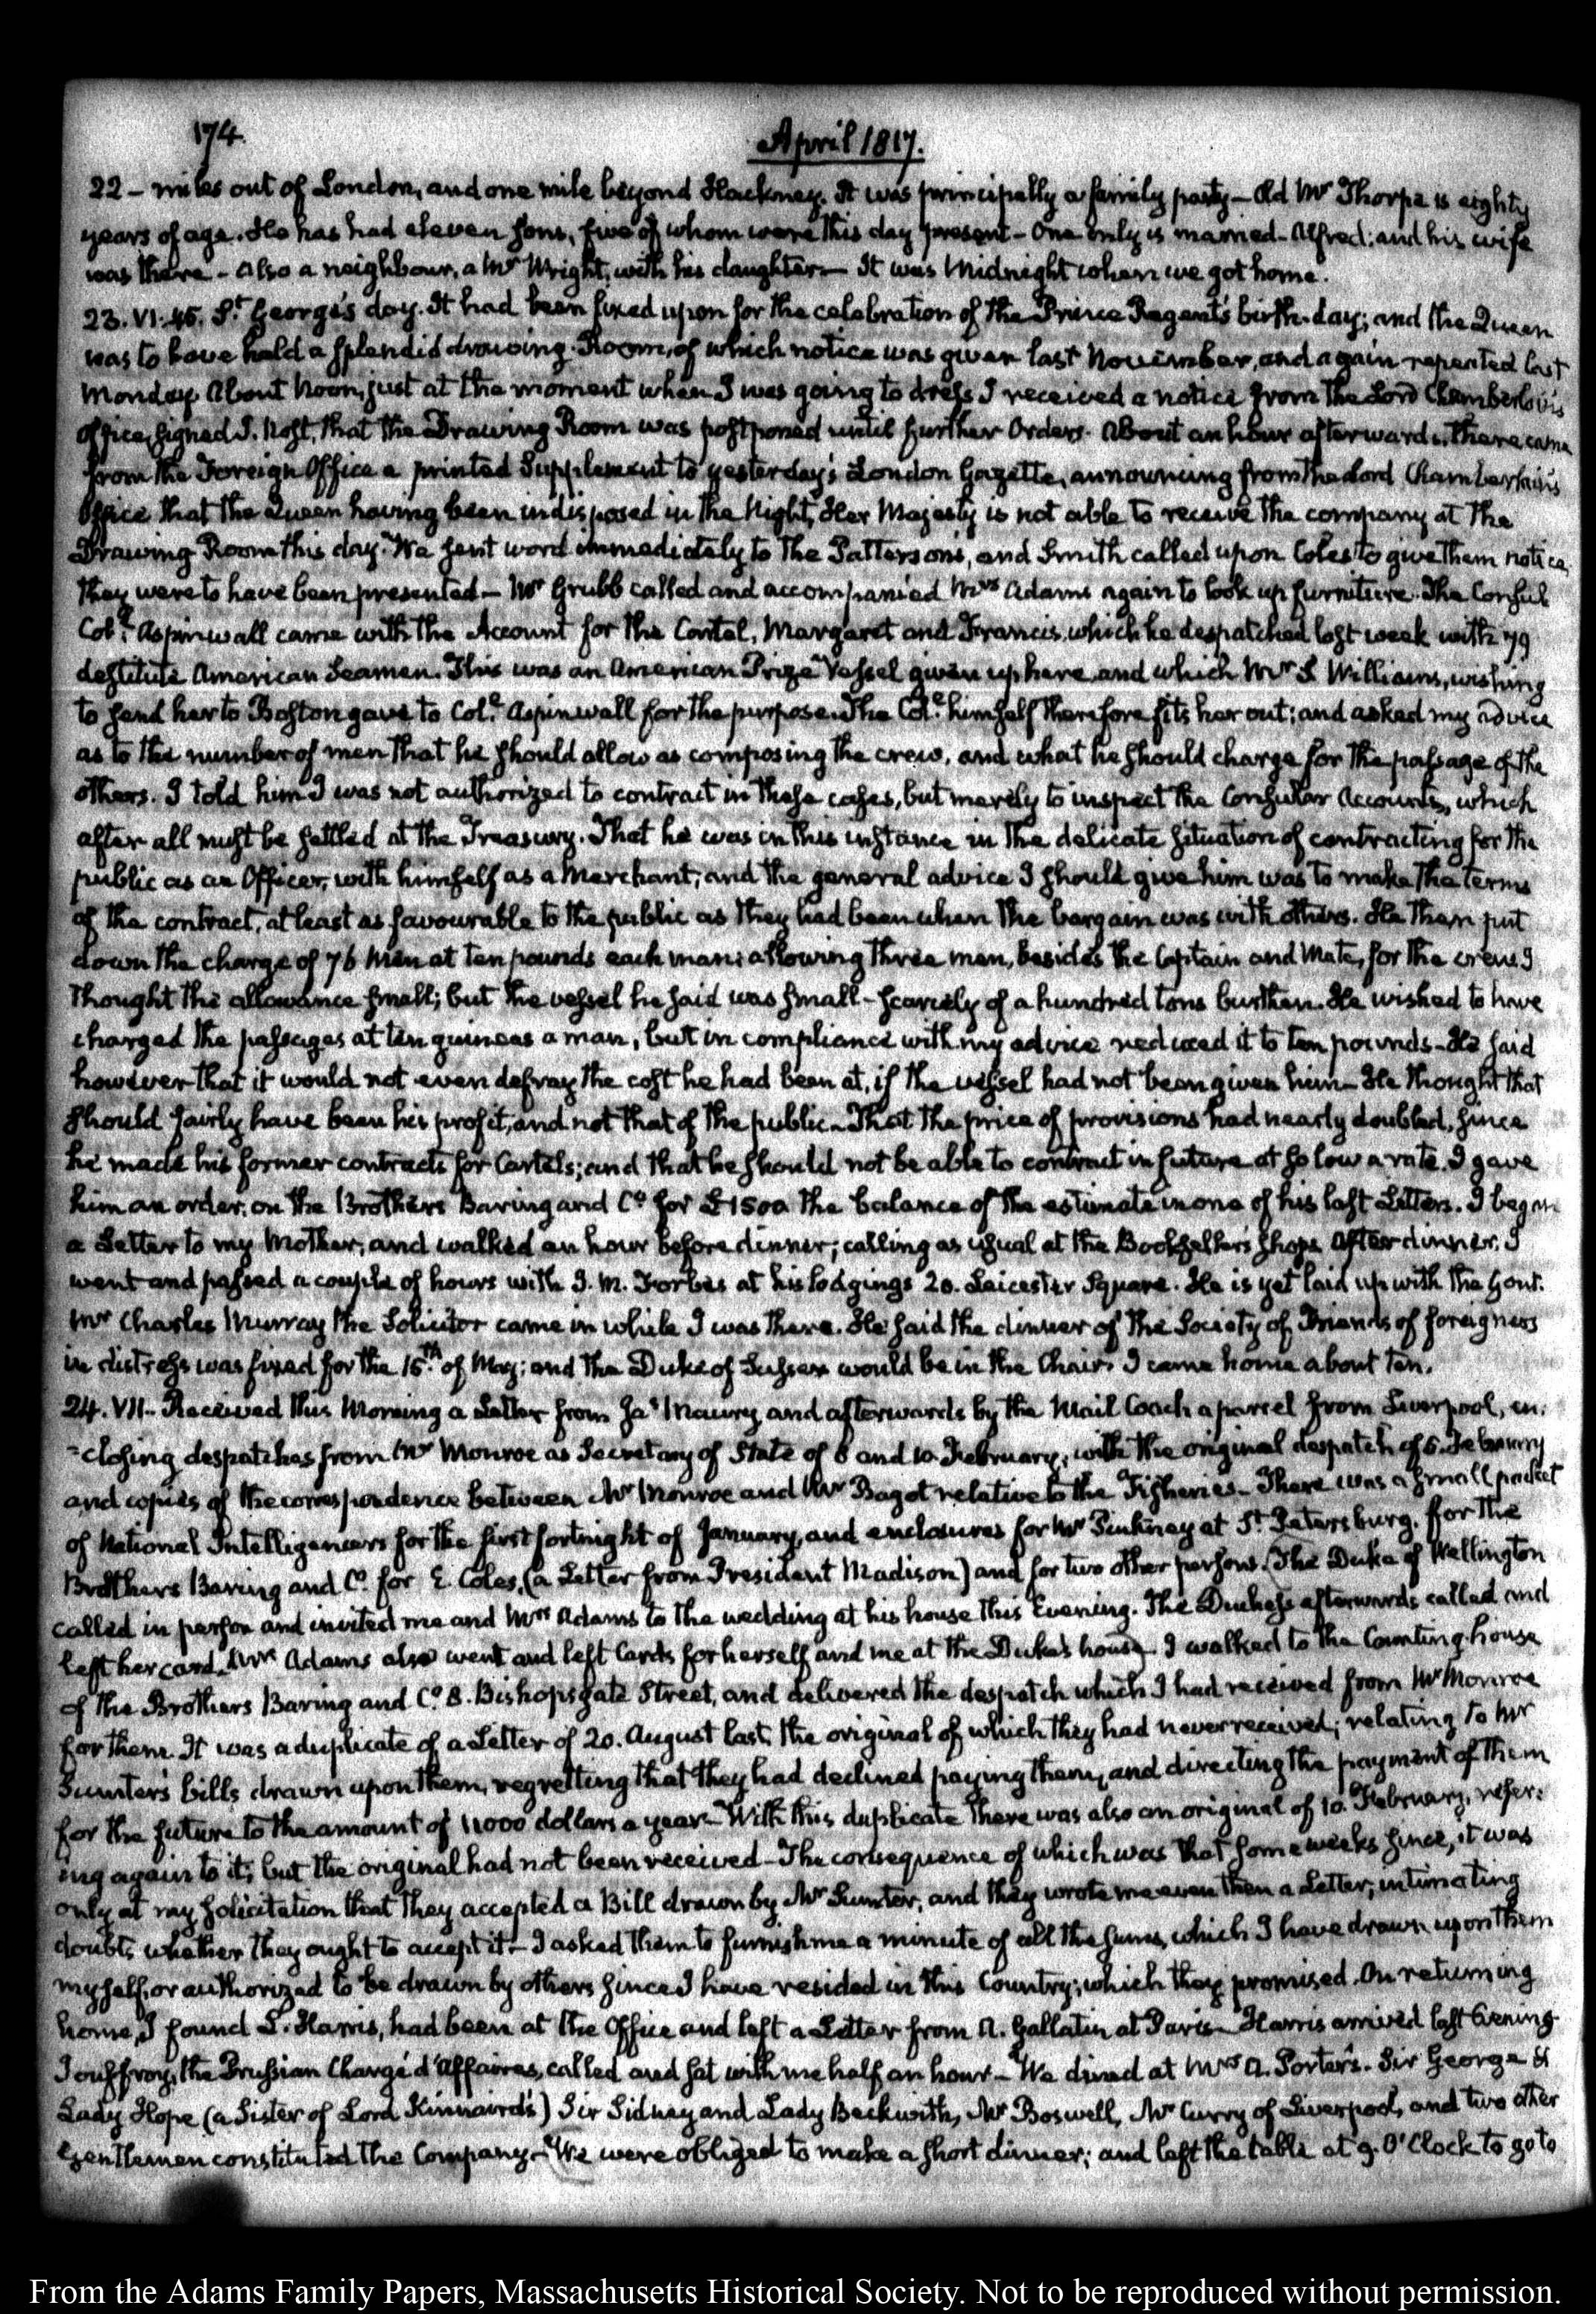 174.
April 1817.
22 - miles out of London, and one mile beyond Hackney. It was principally a family party - Old Mr Thorpe is eighty
years of age. He has had eleven Sons, five of whom were this day present - One only is married - Alfred; and his wife
was there - Also a neighbour, a Mr Wright, with his daughter - It was Midnight when we got home.
23. VI:45. St George's day. It had been fixed upon for the celebration of the Prince Regent's birth-day; and the Queen
was to have held a splendid drawing-Room, of which notice was given last November, and again repeated last
Monday. About Noon, just at the moment when I was going to dress I received a notice from the Lord Chamberlain's
Office, signed J. Nost, that the Drawing Room was postponed until further Orders. About an hour afterwards, there came
from the Foreign Office a printed Supplement to yesterday's London Gazette, announcing from the Lord Chamberlain's
Office that the Queen having been indisposed in the Night, Her Majesty is not able to receive the company at the
Drawing Room this day. We sent word immediately to the Pattersons, and Smith called upon Coles to give them notice
they were to have been presented - Mr Grubb called and accompanied Mrs Adams again to look up furniture. The Consul
Coll. Aspinwall came with the Account for the Cartel, Margaret and Francis, which he despatched last week with 79
destitute American Seamen. This was an American Prize Vessel given up here, and which Mr S. Williams, wishing
to send her to Boston gave to Coll. Aspinwall for the purpose. The Coll. himself therefore fits her out; and asked my advice
as to the number of men that he should allow as composing the crew, and what he should charge for the passage of the
others. I told him I was not authorized to contract in these cases, but merely to inspect the Consular Accounts, which
after all must be settled at the Treasury. That he was in this instance in the delicate situation of contracting for the
public as an Officer, with himself as a Merchant; and the general advice I should give him was to make the terms
of the contract, at least as favourable to the public as they had been when the bargain was with others. He then put
down the charge of 76 Men at ten pounds each man; allowing three men, besides the Captain and Mate, for the crew. I
thought the allowance small; but the vessel he said was small - scarcely of a hundred tons burthen. He wished to have
charged the passages at ten guineas a man, but in compliance with my advice reduced it to ten pounds - He said
however that it would not even defray the cost he had been at, if the vessel had not been given him - He thought that
should fairly have been his profit, and not that of the public - That the price of provisions had nearly doubled, since
he made his former contracts for Cartels; and that he should not be able to contract in future at so low a rate. I gave
him an order on the Brothers Baring and Co. for £1500 the balance of the estimate in one of his last Letters. I began
a Letter to my Mother; and walked an hour before dinner; calling as usual at the Bookseller's shops. After dinner, I
went and passed a couple of hours with J. M. Forbes at his lodgings 20. Leicester Square. He is yet laid up with the Gout.
Mr Charles Murray the Solicitor came in while I was there. He said the dinner of the Society of Friends of foreigners
in distress was fixed for the 15th of May; and the Duke of Sussex would be in the Chair. I came home about ten.
24. VII. Received this Morning a Letter from Jas Maury and afterwards by the Mail Coach a parcel from Liverpool, en:
=closing despatches from Mr Monroe as Secretary of State of 8 and 10. February, with the original despatch of 5. February
and copies of the correspondence between Mr Monroe and Mr Bagot relative to the Fisheries - There was a small packet
of National Intelligencers for the first fortnight of January, and enclosures for Mr Pinkney at St. Petersburg, for the
Brothers Baring and Co. for E. Coles, (a Letter from President Madison) and for two other persons. The Duke of Wellington
called in person and invited me and Mrs Adams to the wedding at his house this Evening. The Duchess afterwards called and
left her card. Mrs Adams also went and left Cards for herself and me at the Duke's house. I walked to the Counting-house
of the Brothers Baring and Co. 8. Bishopsgate Street, and delivered the despatch which I had received from Mr Monroe
for them. It was a duplicate of a Letter of 20. August last, the original of which they had never received; relating to Mr
Sumter's bills drawn upon them, regretting that they had declined paying them, and directing the payment of them
for the future to the amount of 11000 dollars a year - With this duplicate there was also an original of 10. February, refer:
ing again to it; but the original had not been received - The consequence of which was that some weeks since, it was
only at my solicitation that they accepted a Bill drawn by Mr Sumter, and they wrote me even then a Letter, intimating
doubts whether they ought to accept it - I asked them to furnish me a minute of all the sums, which I have drawn upon them
myself, or authorized to be drawn by others since I have resided in this Country; which they promised. On returning
home, I found L. Harris, had been at the Office and left a Letter from A. Gallatin at Paris - Harris arrived last Evening
Jouffroy, the Prussian Chargé d'affaires, called and sat with me half an hour - We dined at Mrs A. Porter's. Sir George &
Lady Hope (a Sister of Lord Kinnaird's) Sir Sidney and Lady Beckwith, Mr Boswell, Mr Curry of Liverpool, and two other
Gentlemen constituted the Company - We were obliged to make a short dinner; and left the table at 9. O'Clock to go to
From the Adams Family Papers, Massachusetts Historical Society. Not to be reproduced without permission.